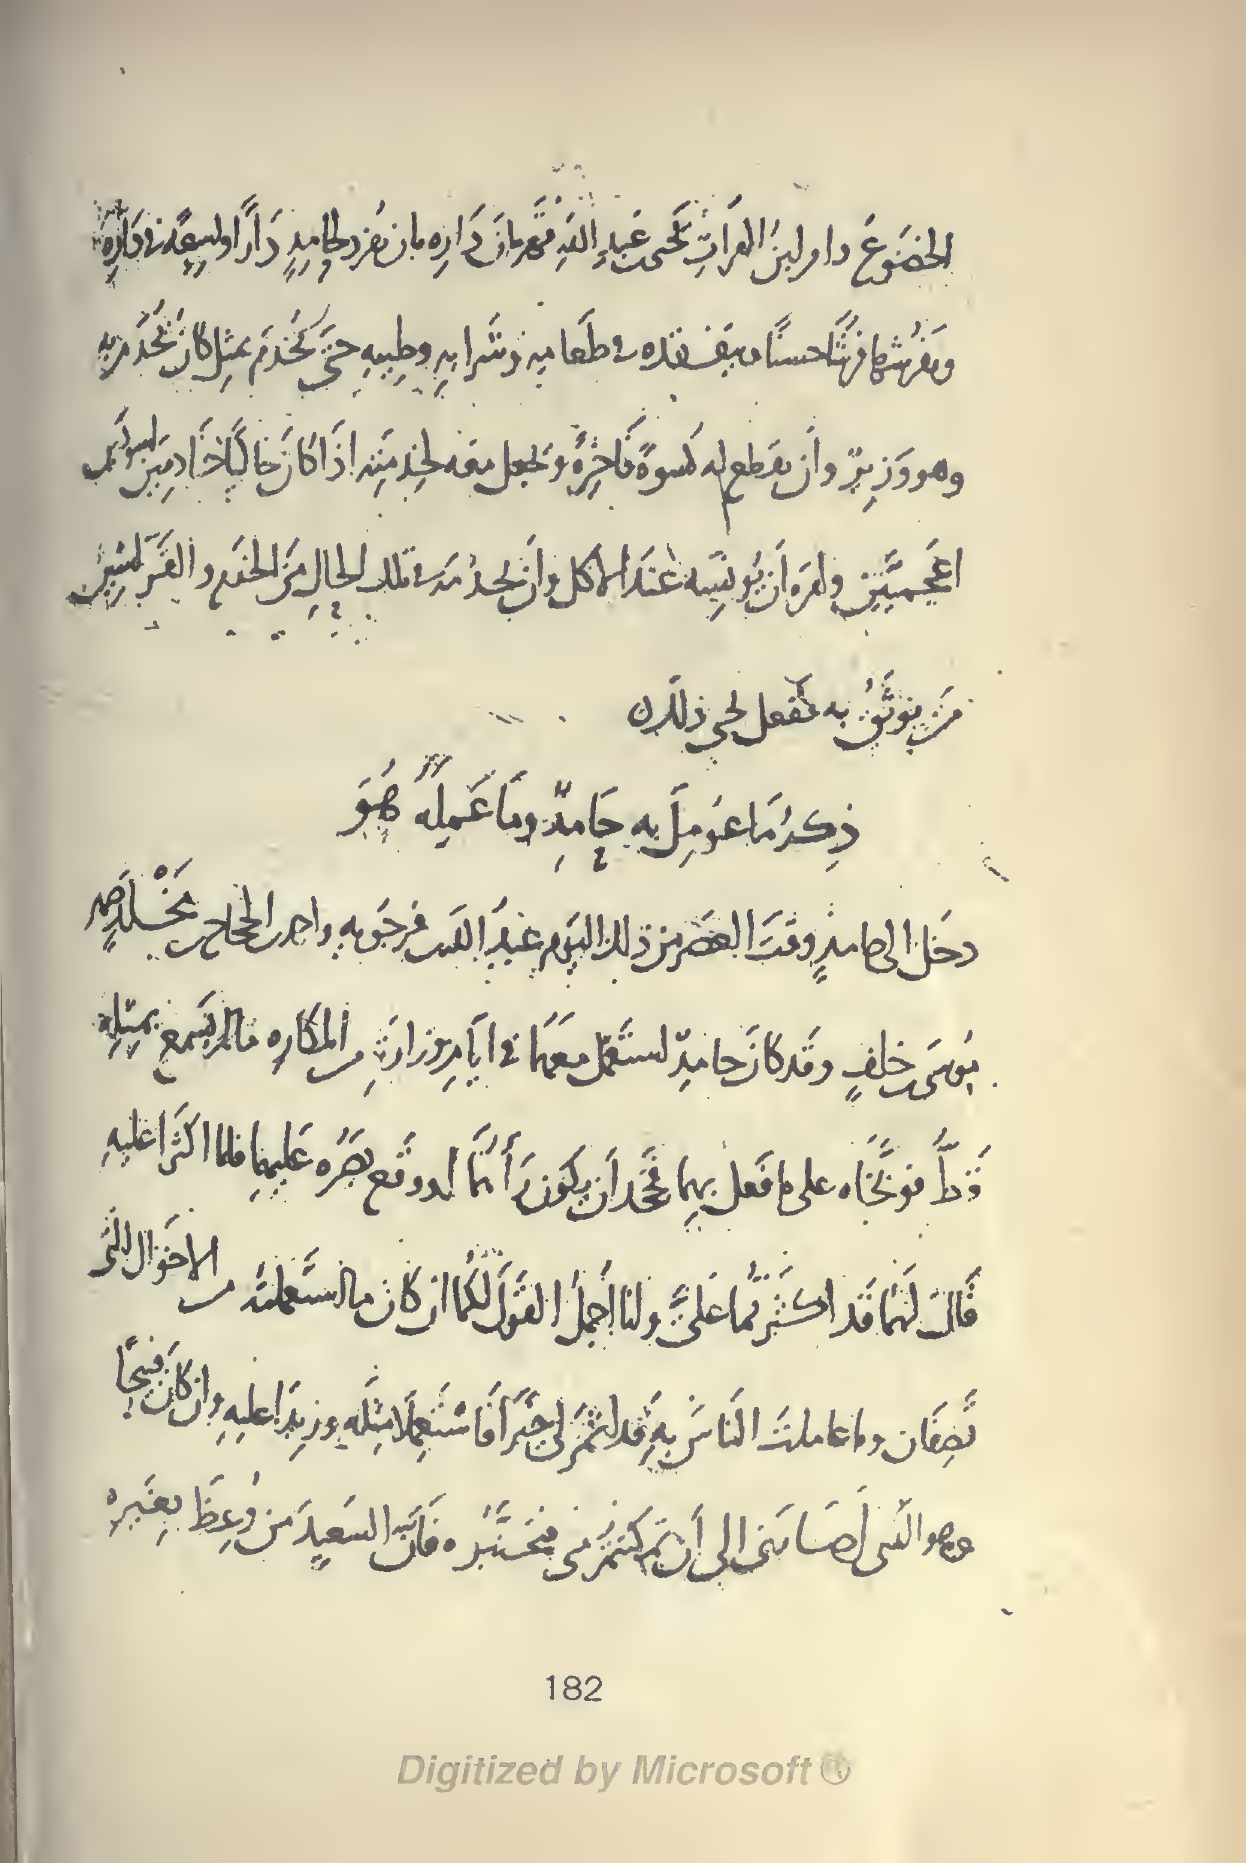 الخضوع وامر ابن الفرات يحيى بن عبد الله قهرمان داره بان يفرد لحامدٍ دارًا واسعة في داره
ويفرشها فرشًا حسنًا ويتفقده في طعامه وشرابه وطيبه حتى يُخدم بمثل ما كان يُخدم به
وهو وزير وان يقطع له كسوة فاخرة ويجعل معه لخدمته اذا كان خاليًا خادمين اسودين
اعجميين وامره ان يونسه عند الاكل وان يخدمه في تلك الحال من الخدم والفراشين
من يوثق به ففعل يحيى ذلك
ذكر ما عومل به حامد وما عمله هو
دخل الى حامدٍ وقت العصر من ذلك اليوم عبد الله بن فرجويه واحمد بن الحجاج بن مخلد صهر
موسى بن خلف وقد كان حامد استعمل معهما في ايام وزارته من المكاره ما لم يسمع بمثله
قط فوبخاه على ما فعل بهما فجحد ان يكون رأهما او وقع بصره عليهما فلما اكثرا عليه
قال لهما قد اكثرتما على وانا اجمل القول لكما ان كان ما استعملته من الاحوال التى
تصفان وما عاملت الناس به قد اثمر لى خيرًا فاستعملا مثله وزيدا عليه وان كان قبيحًا
وهو الذى اصارنى الى ان تمكنتم منى فتجنبوه فان السعيد من وعظ بغيره
182
Digitized by Microsoft ®